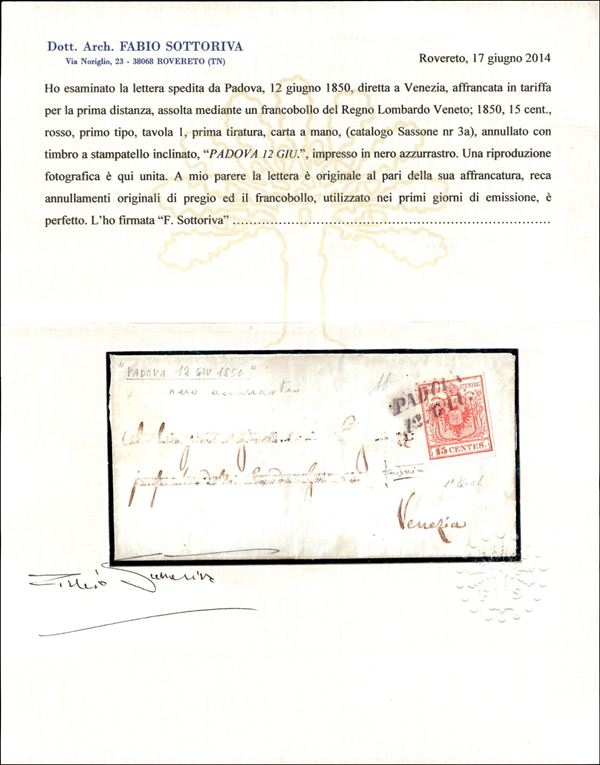 Dott. Arch. FABIO SOTTORIVA
Via Noriglio, 23 - 38068 ROVERETO (TN)
Rovereto, 17 giugno 2014
Ho esaminato la lettera spedita da Padova, 12 giugno 1850, diretta a Venezia, affrancata in tariffa
per la prima distanza, assolta mediante un francobollo del Regno Lombardo Veneto; 1850, 15 cent.,
rosso, primo tipo, tavola 1, prima tiratura, carta a mano, (catalogo Sassone nr 3a), annullato con
timbro a stampatello inclinato, “PADOVA 12 GIU.”, impresso in nero azzurrastro. Una riproduzione
fotografica è qui unita. A mio parere la lettera è originale al pari della sua affrancatura, reca
annullamenti originali di pregio ed il francobollo, utilizzato nei primi giorni di emissione, è
perfetto. L’ho firmata “F. Sottoriva” ……………………………………………………
"PADOVA 12 GIU 1850"
nero azzurrastro
PADO
12 GIU
15 CENTES.
Venezia